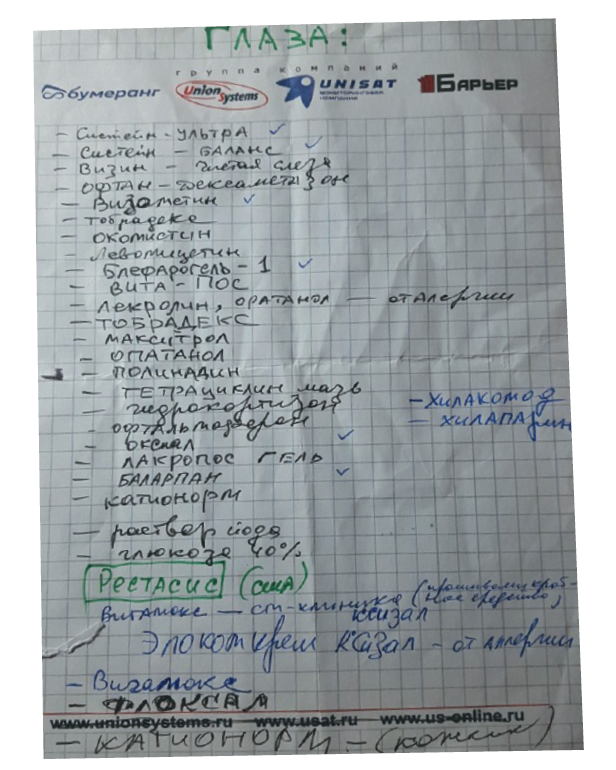 ГЛАЗА:
группа компаний
бумеранг Union Systems UNISAT МОНИТОРИНГОВАЯ КОМПАНИЯ БАРЬЕР
- Систейн - УЛЬТРА ✓
- Систейн - БАЛАНС ✓
- Визин - чистая слеза
- ОФТАН - дексаметазон
- Визометин ✓
- тобрадекс
- окомистин
- Левомицетин
- Блефарогель - 1 ✓
- ВИТА - ПОС
- Лекролин, оратанол - от алергии
- ТОБРАДЕКС
- МАКСИТРОЛ
- ОПАТАНОЛ
- ПОЛИНАДИН
- ТЕТРАЦИКЛИН мазь
- гидрокортизон - ХИЛАКОМОД
- офтальмоферон - ХИЛАПАРИН
- окспал ✓
- ЛАКРОПОС ГЕЛЬ
- БАЛАРПАН ✓
- катионорм
- раствор йода
- глюкоза 40%
РЕСТАСИС (США)
Вигамокс - ст-клиника
ксизал
Элоком крем Ксизал - от аллергии
- Вигамокс
- ФЛОКСАЛ
www.unionsystems.ru www.usat.ru www.us-online.ru
- КАТИОНОРМ -